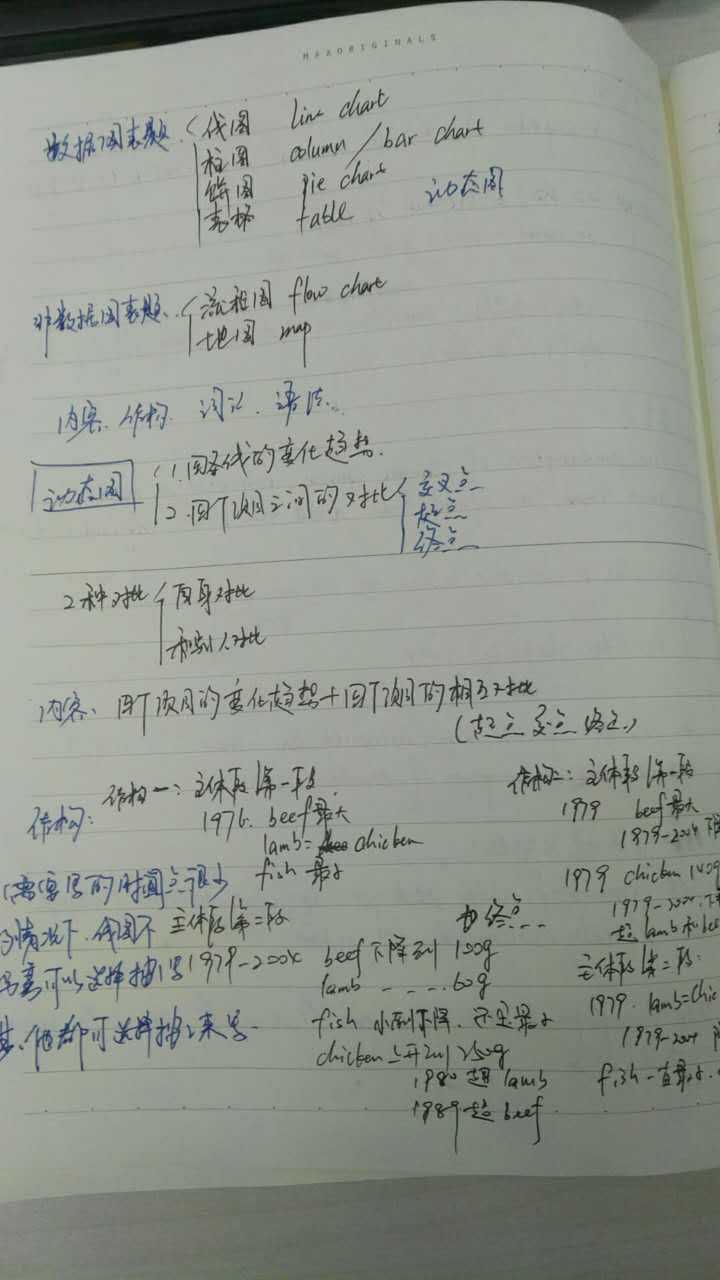 MAXORIGINALS
数据图表题 线图 line chart
柱图 column / bar chart
饼图 pie chart
表格 table 动态图
非数据图表题 流程图 flow chart
地图 map
内容、结构、词汇、语法
动态图 1.四条线的变化趋势
2.四个项目之间的对比 交叉点
起点
终点
2种对比 自身对比
和别人对比
内容、四个项目的变化趋势+四个项目的相互对比
(起点 交点 终点)
结构:
结构一:主体段第一段
1976. beef最大
lamb= chicken
fish 最少
主体段第二段
1979-2004 beef下降到 100g
终点
lamb - - .... 60g
fish 小幅下降、还是最少
chicken上升到 250g
1980 超 lamb
1989 超 beef
(需要写的时间点很少
情况下,线图不
可以选择
其他都可选择
结构二:主体段第一段
1979 beef最大
1979-2004 下降
1979 chicken 140g
1979-2004
超 lamb和bee
主体段第二段:
1979. lamb=chic
1979-2004
fish一直最少.